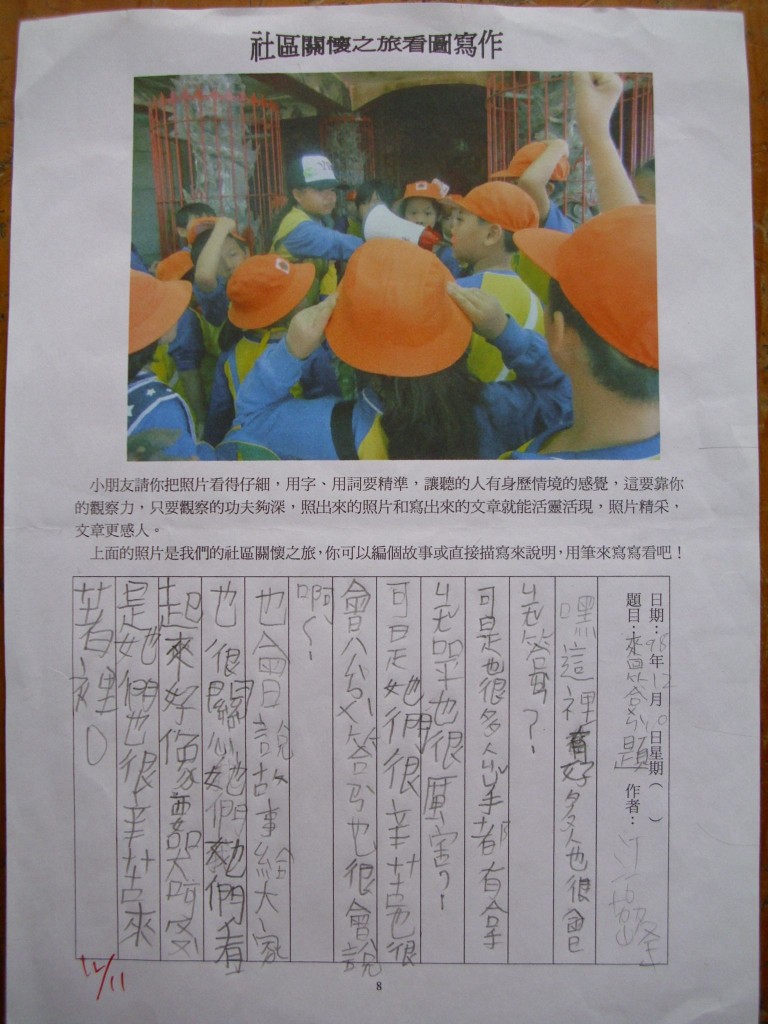 社區關懷之旅看圖寫作
小朋友請你把照片看得仔細，用字、用詞要精準，讓聽的人有身歷情境的感覺，這要靠你
的觀察力，只要觀察的功夫夠深，照出來的照片和寫出來的文章就能活靈活現，照片精采，
文章更感人。
上面的照片是我們的社區關懷之旅，你可以編個故事或直接描寫來說明，用筆來寫寫看吧！
日期：98年12月10日星期（　）
題目：來ㄑㄤˇ答ㄉㄜ˙題　作者：江
嘿這裡有好多人也很會
ㄐㄤˇ答ㄛ？
可是也很多人小手都有拿
也很厲害？
可是她們很辛苦也很
會ㄈㄣ答ㄉㄜ˙也很會說
啊～
也會說故事給大家
也很關心她們她們看
起來好像
是她們也很辛苦來
著裡。
12/11
8